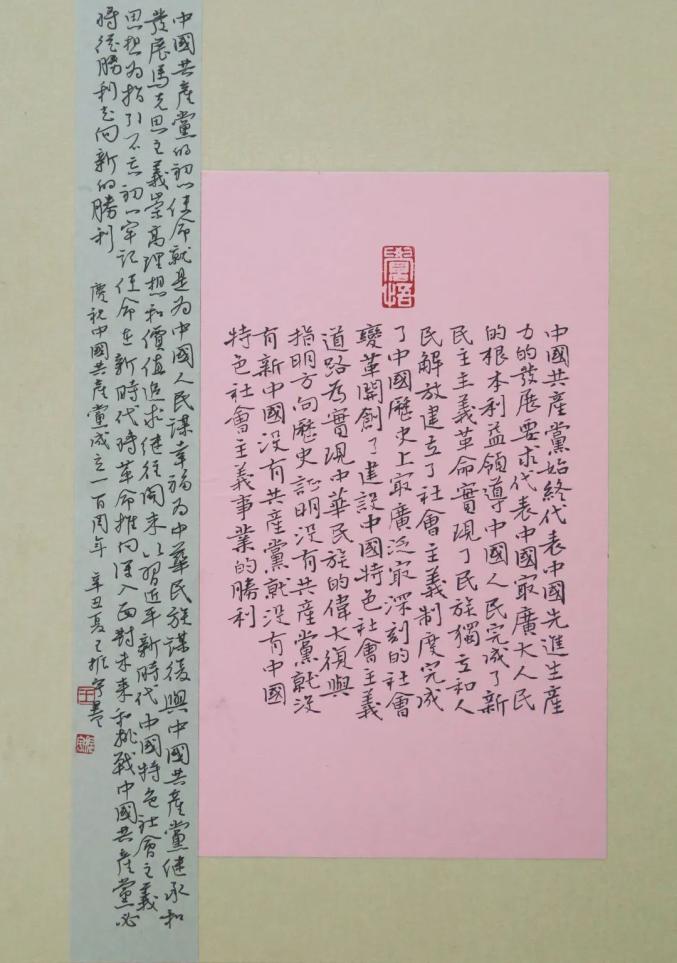 覺悟
中國共產黨始終代表中國先進生產
力的發展要求代表中國最廣大人民
的根本利益領導中國人民完成了新
民主主義革命實現了民族獨立和人
民解放建立了社會主義制度完成
了中國歷史上最廣泛最深刻的社會
變革開創了建設中國特色社會主義
道路為實現中華民族的偉大復興
指明方向歷史証明沒有共產黨就沒
有新中國沒有共產黨就沒有中國
特色社會主義事業的勝利
中國共產黨的初心使命就是為中國人民謀幸福為中華民族謀復興中國共產黨继承和
發展馬克思主義崇高理想和價值追求继往開來以習近平新時代中國特色社會主義
思想為指引不忘初心牢記使命在新時代將革命推向深入面對未來和挑戰中國共產黨必
將從勝利走向新的勝利
慶祝中國共產黨成立一百周年 辛丑夏
王